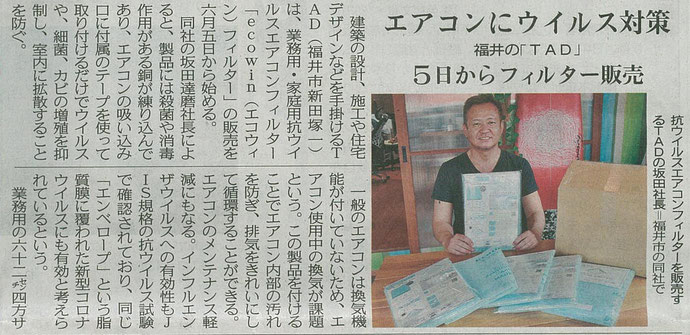 エアコンにウイルス対策
福井の「ＴＡＤ」
５日からフィルター販売
抗ウイルスエアコンフィルターを販売す
るＴＡＤの坂田社長＝福井市の同社で
建築の設計、施工や住宅
デザインなどを手掛けるＴ
ＡＤ（福井市新田塚一）
は、業務用・家庭用抗ウイ
ルスエアコンフィルター
「ｅｃｏｗｉｎ（エコウィ
ン）フィルター」の販売を
六月五日から始める。
同社の坂田達磨社長によ
ると、製品には殺菌や消毒
作用がある銅が練り込んで
あり、エアコンの吸い込み
口に付属のテープを使って
取り付けるだけでウイルス
や、細菌、カビの増殖を抑
制し、室内に拡散すること
を防ぐ。
一般のエアコンは換気機
能が付いていないため、エ
アコン使用中の換気が課題
という。この製品を付ける
ことでエアコン内部の汚れ
を防ぎ、排気をきれいにし
て循環することができる。
エアコンのメンテナンス軽
減にもなる。インフルエン
ザウイルスへの有効性もＪ
ＩＳ規格の抗ウイルス試験
で確認されており、同じ
「エンベロープ」という脂
質膜に覆われた新型コロナ
ウイルスにも有効と考えら
れているという。
業務用の六十二㌢四方サ